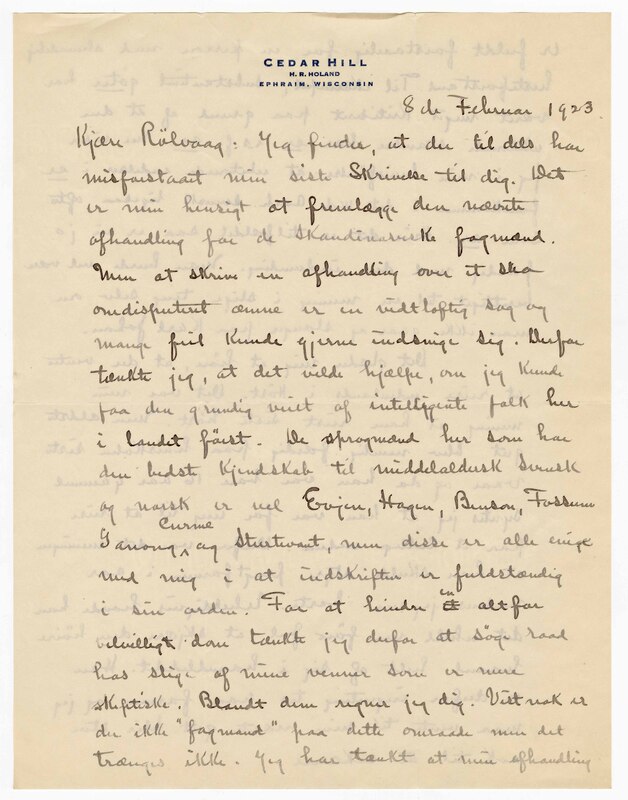 CEDAR HILL
H. R. HOLAND
EPHRAIM, WISCONSIN
8de Februar 1923
Kjære Rölvaag: Jeg finder, at du til dels har
misforstaaet min siste Skrivelse til dig. Det
er min hensigt at fremlægge den nævnte
afhandling for de Skandinaviske fagmænd.
Men at skrive en afhandling over et ska
omdisputeret æmne er en vidtløftig sag og
mange feil kunde gjerne indsnige sig. Derfor
tænkte jeg, at det vilde hjælpe, om jeg kunde
faa den grundig viet af intelligente folk her
i landet först. De sprogmænd her som har
den bedste Kjendskab til middelaldersk svensk
og norsk er vel Evjen, Hagen, Benson, Fossum
Curme
Ganong, og Sturtevant, men disse er alle enige
med mig i at indskriften er fuldstændig
i sin orden. For at hindre en altfor
velvilligt dom tænkte jeg derfor at söge raad
hos slige af mine venner som er mere
skeptiske. Blandt dem regner jeg dig. Vistnok er
du ikke "fagmand" paa dette omraade men det
trænges ikke. Jeg har tænkt at min afhandling